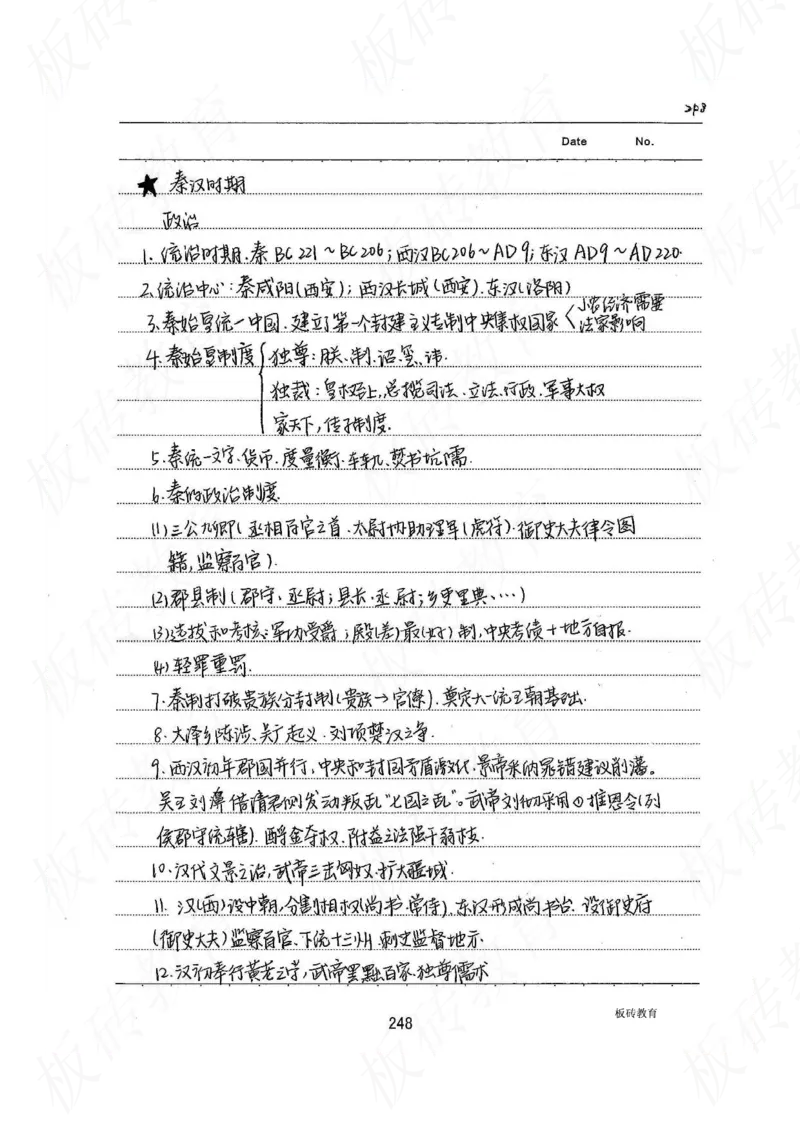 248
Date No.
★ 秦汉时期
政治
1. 统治时期.秦 BC 221～BC 206；西汉BC 206～AD 9；东汉 AD9～AD 220.
2.统治中心：秦咸阳(西安)；西汉长城(西安).东汉(洛阳)
3.秦始皇统一中国.建立了第一个封建主义专制中央集权国家〈小农经济需要
法家影响
4.秦始皇制度{独尊：朕、制、诏、玺、讳.
独裁：皇权至上,总揽司法、立法、行政、军事大权
家天下,传子制度.
5.秦统一文字.货币.度量衡.车轨.焚书坑儒.
6.秦的政治制度.
(1)三公九卿(丞相百官之首.太尉协助理军(虎符).御史大夫律令图
籍,监察百官).
(2)郡县制(郡守、丞尉；县长、丞、尉；乡吏里典、…)
(3)选拔和考核：军功受爵；殿(差)最(好)制,中央考绩+地方自报.
(4)轻罪重罚.
7.秦制打破贵族分封制(贵族→官僚).奠定大一统王朝基础.
8.大泽乡陈涉、吴广起义.刘项楚汉之争.
9.西汉初年郡国并行,中央和封国矛盾激化.景帝采纳晁错建议削藩。
吴王刘濞借清君侧发动叛乱“七国之乱”。武帝刘彻采用推恩令(列
侯郡守统辖).酎金夺权.附益之法强干弱枝.
10.汉代文景之治,武帝三击匈奴.扩大疆域.
11.汉(西)设中朝,分割相权(尚书.常侍).东汉形成尚书台.设御史府
(御史大夫)监察百官.下统十三州刺史监督地方.
12.汉初奉行黄老之学,武帝罢黜百家.独尊儒术
248
板砖教育